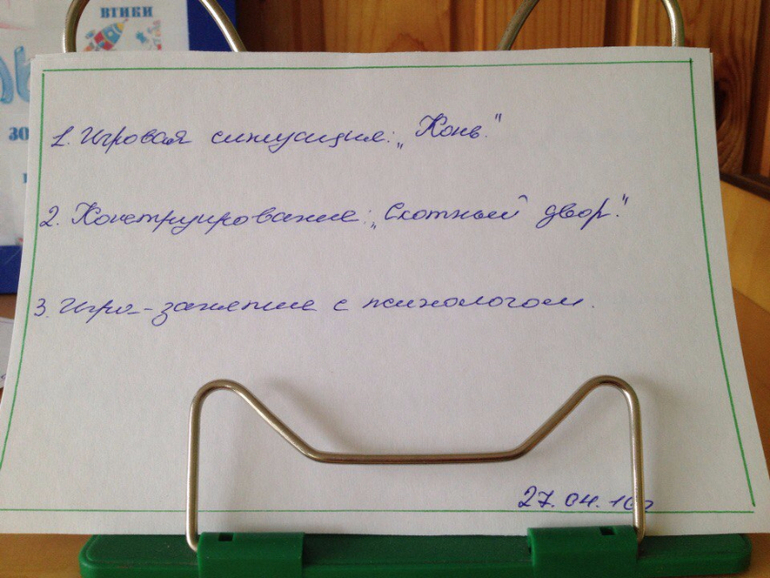 ВТИКИ
ЗО
1. Игровая ситуация: „Конь."
2. Конструирование: „Скотный двор".
3. Игра-занятие с психологом.
27.04.16г